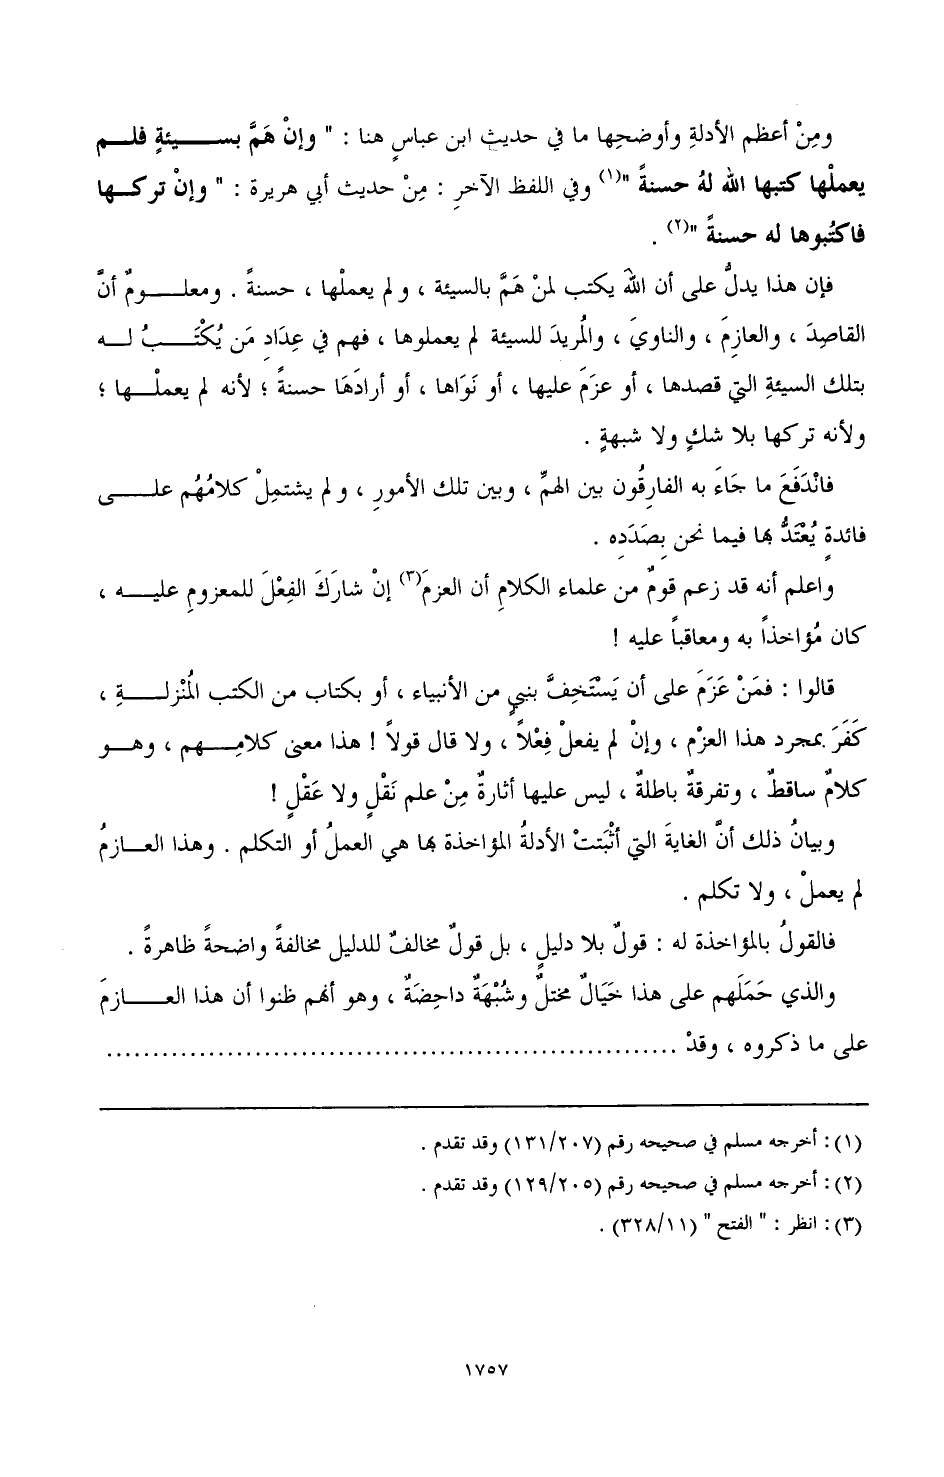 ومِنْ أعظم الأدلةِ وأوضحِها ما في حديثِ ابن عباسٍ هنا : " وإنْ هَمَّ بســـيئةٍ فلـــم
يعملْها كتبها اللهُ لهُ حسنةً "(١) وفي اللفظ الآخرِ : مِنْ حديث أبي هريرة : " وإنْ تركـــها
فاكتُبوها له حسنةً "(٢) .
فإن هذا يدلُّ على أن اللهَ يكتب لمنْ هَمَّ بالسيئة ، ولم يعملْها ، حسنةً . ومعلـــومٌ أنَّ
القاصِدَ ، والعازِمَ ، والناويَ ، والمُريدَ للسيئة لم يعملوها ، فهم في عِدَادِ مَن يُكْتَـــبُ لـــه
بتلك السيئةِ التي قصدها ، أو عزَمَ عليها ، أو نَوَاها ، أو أرادَهَا حسنةً ؛ لأنه لم يعملْـــها ؛
ولأنه تركها بلا شكٍ ولا شبهةٍ .
فانْدَفَعَ ما جَاءَ به الفارِقُون بين الهمِّ ، وبين تلك الأمورِ ، ولم يشتمِلْ كلامُهُم علـــى
فائدةٍ يُعْتَدُّ بها فيما نحن بِصَدَدِه .
واعلم أنه قد زعم قومٌ من علماء الكلامِ أن العزمَ(٣) إنْ شارَكَ الفِعْلَ للمعزومِ عليـــه ،
كان مُؤاخذاً به ومعاقباً عليه !
قالوا : فمَنْ عَزَمَ على أن يَسْتَخِفَّ بنبيٍ من الأنبياء ، أو بكتاب من الكتب المُنْزلـــةِ ،
كَفَرَ بمجرد هذا العزْم ، وإنْ لم يفعلْ فِعْلاً ، ولا قال قولاً ! هذا معنى كلامِـــهم ، وهـــو
كلامٌ ساقطٌ ، وتفرقةٌ باطلةٌ ، ليس عليها أثارةٌ مِنْ علم نَقْلٍ ولا عَقْلٍ !
وبيانُ ذلك أنَّ الغايةَ التي أثْبَتتْ الأدلةُ المؤاخذة بها هي العملُ أو التكلم . وهذا العـــازمُ
لم يعملْ ، ولا تكلم .
فالقولُ بالمؤاخذة له : قولٌ بلا دليلٍ ، بل قولٌ مخالفٌ للدليل مخالفةً واضحةً ظاهرةً .
والذي حَمَلَهم على هذا خَيَالٌ مختلٌ وشُبْهَةٌ داحِضَةٌ ، وهو أنهم ظنوا أن هذا العـــازمَ
على ما ذكروه ، وقدْ .............................................................
(١) : أخرجه مسلم في صحيحه رقم (١٣١/٢٠٧) وقد تقدم .
(٢) : أخرجه مسلم في صحيحه رقم (١٢٩/٢٠٥) وقد تقدم .
(٣) : انظر : " الفتح " (٣٢٨/١١) .
١٧٥٧